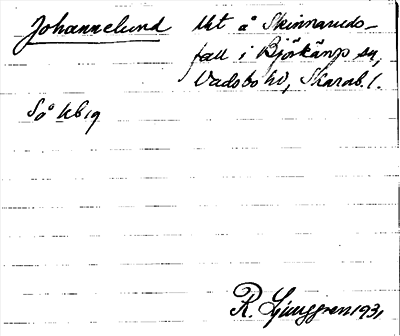 Johannelund
Utt å Skinnaruds-
fall i Björkäng sn,
Vadsbo hd, Skarab. l.
Så kbg
R. Ljunggren 1931